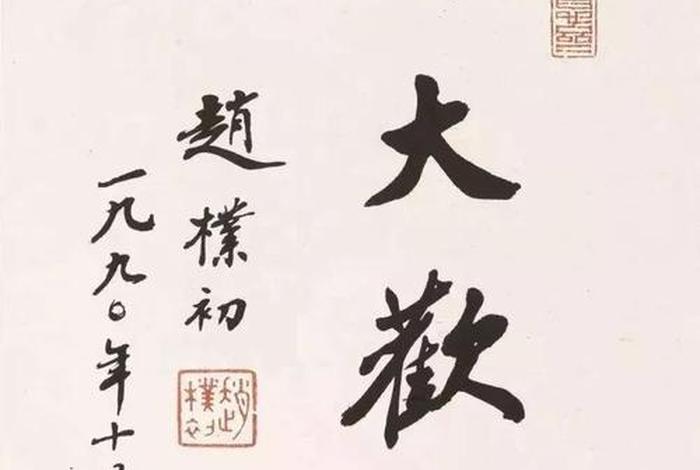 大歡
趙樸初
一九九〇年十
趙樸初